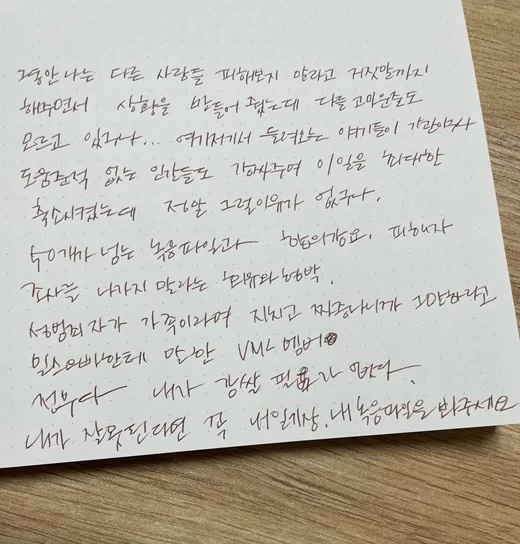 그동안 나는 다른 사람들 피해보지 말라고 거짓말까지
해주면서 상황을 만들어 줬는데 다들 고마운줄도
모르고 있구나... 여기저기서 들려오는 얘기들이 가관이구나
도움준적 없는 인간들도 감싸주며 이일을 최대한
축소시켰는데 정말 그럴이유가 없구나.
40개가 넘는 녹음파일과 합의강요. 피해자
조사를 나가지 말라는 회유와 협박.
성범죄자가 가족이라며 지치고 짜증나니까 그만하라고
일소오빠한테 말한 VML 멤버
전부다 내가 감쌀 필요가 없다.
내가 잘못된다면 꼭 내일기장, 내녹음파일을 봐주세요